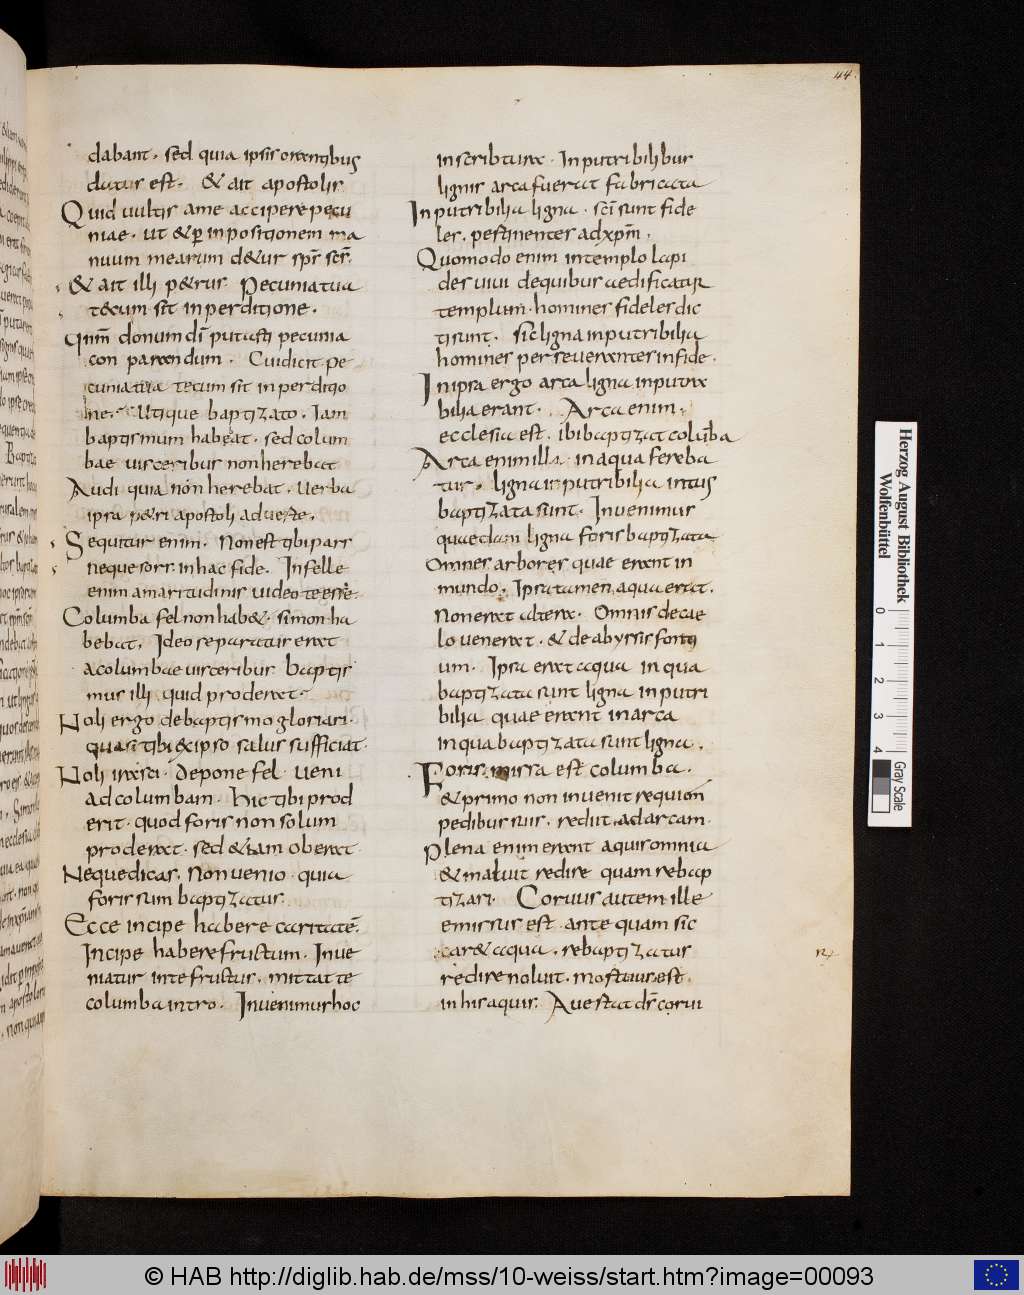 44
dabant. sed quia ipsis orantibus
datur est. & ait apostolis
Quid uultis ame accipere pecu
niae. ut & p̄ inpositionem ma
nuum mearum d&ur sp̄s sc̄s.
& ait illi p&rus. Pecunia tua
tecum sit in perditione.
Qn̄m donum dī putasti pecunia
conparandum. Cui dicit Pe
cunia tua tecum sit in perditio
ne. Utique baptizato. Iam
baptismum habeat. sed colum
bae uisceribus non herebat
Audi quia non herebat. Uerba
ipsa p&ri apostoli aduerte.
Sequitur enim. Non est tibi pars
neque sors in hac fide. In felle
enim amaritudinis uideo te esse.
Columba fel non hab&. simon ha
bebat. Ideo separatur erat
a columbae uisceribus. Baptis
mus illi quid proderat.
Noli ergo de baptismo gloriari.
quasi tibi ex ipso salus sufficiat.
Noli irasci. Depone fel. Ueni
ad columbam. Hic tibi prod
erit. quod foris non solum
proderat. sed &iam oberat.
Neque dicas. Non uenio. quia
foris sum baptizatus.
Ecce incipe habere caritatē.
Incipe habere fructum. Inue
niatur in te fructus. mittat te
columba intro. Inuenimus hoc
in scribtura. In putribilibus
lignis arca fuerat fabricata
In putribilia ligna. sc̄i sunt fide
les. pertinentes ad xp̄m.
Quomodo enim in templo lapi
des uiui de quibus aedificatur
templum. homines fideles dic
ti sunt. sic ligna inputribilia
homines perseuerantes in fide.
In ipsa ergo arca ligna inputra
bilia erant. Arca enim.
ecclesia est. ibi baptizat colūba
Arca enim illa. in aqua fereba
tur. ligna inputribilia intus
baptizata sunt. Inuenimus
quaedam ligna foris baptizata
Omnes arbores quae erant in
mundo. Ipsa tamen aqua erat.
Non erat altera. Omnis de cae
lo uenerat. & de abyssis fonti
um. Ipsa erat aqua in qua
baptizata sunt ligna inputri
bilia quae erant in arca
in qua baptizata sunt ligna.
Foris missa est columba.
& primo non inuenit requiem
pedibus suis. rediit ad arcam.
Plena enim erant aquis omnia
& maluit redire quam rebap
tizari. Coruus autem ille
emissus est. ante quam sic
car& aqua. rebaptizatus
redire noluit. mortuus est
in his aquis. Auertat ds̄ corui
Herzog August Bibliothek
Wolfenbüttel
0 1 2 3 4
Gray Scale
© HAB http://diglib.hab.de/mss/10-weiss/start.htm?image=00093